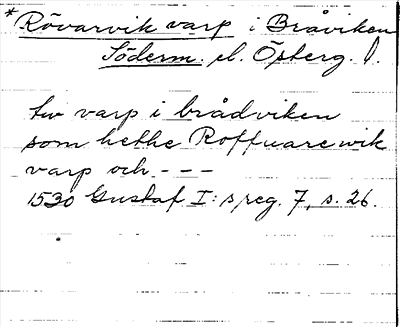 * Rövarvik varp i Bråviken
Söderm. el. Österg.
tw varp i brådviken
som hethe Roffuare wik
varp och - - -
1530 Gustaf I:s reg. 7, s. 26.